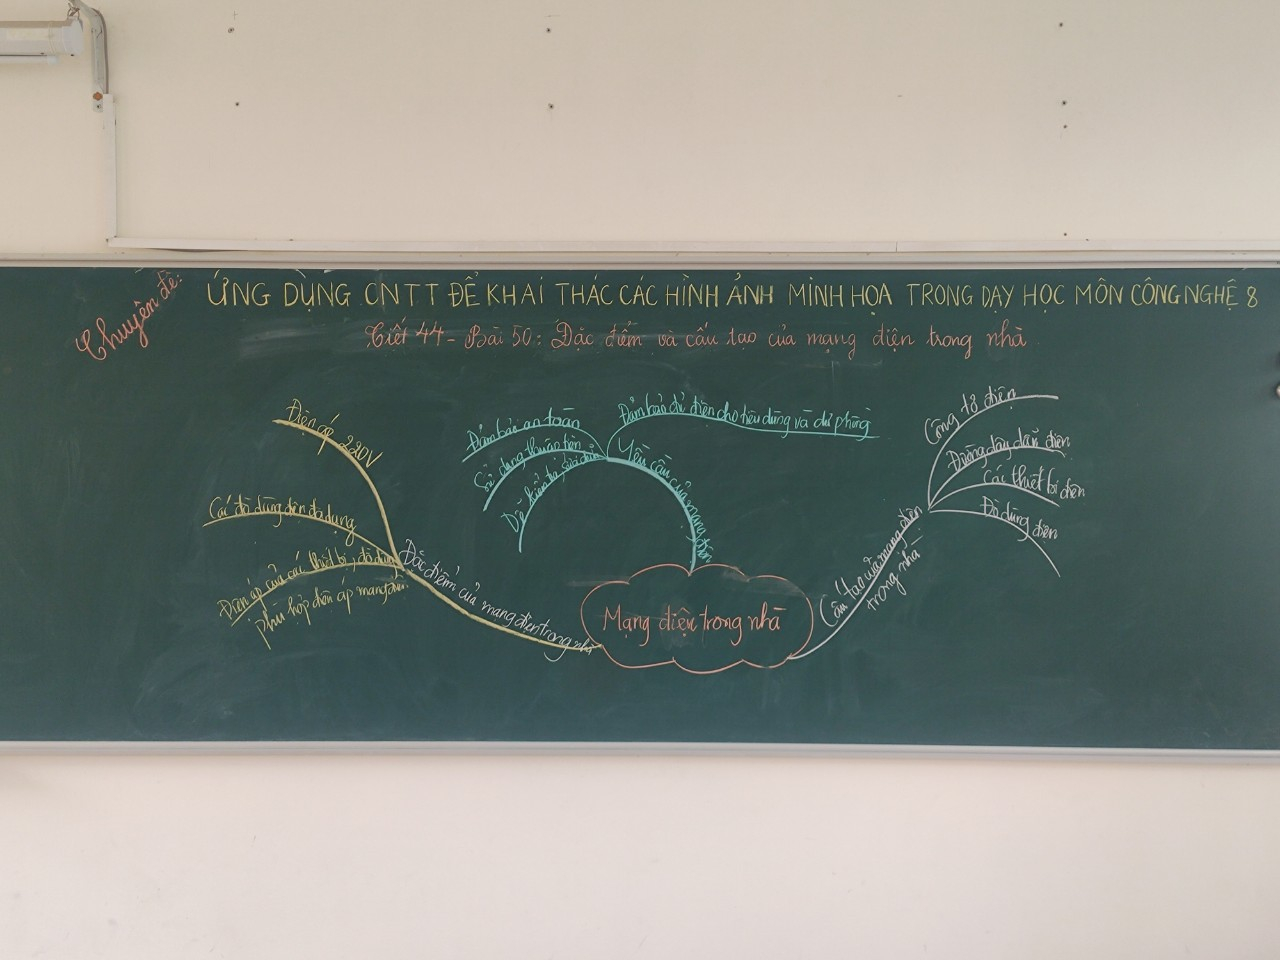 Chuyên đề:
ỨNG DỤNG CNTT ĐỂ KHAI THÁC CÁC HÌNH ẢNH MINH HỌA TRONG DẠY HỌC MÔN CÔNG NGHỆ 8
Tiết 44 - Bài 50: Đặc điểm và cấu tạo của mạng điện trong nhà
Điện áp 220V
Các đồ dùng điện đa dạng
Điện áp của các thiết bị, đồ dùng
phù hợp điện áp mạng điện.
Đặc điểm của mạng điện trong nhà
Đảm bảo an toàn
Sử dụng thuận tiện
Dễ kiểm tra, sửa chữa
Đảm bảo đủ điện cho tiêu dùng và dự phòng
Yêu cầu của mạng điện
Mạng điện trong nhà
Cấu tạo của mạng điện
trong nhà
Công tơ điện
Đường dây dẫn điện
Các thiết bị điện
Đồ dùng điện